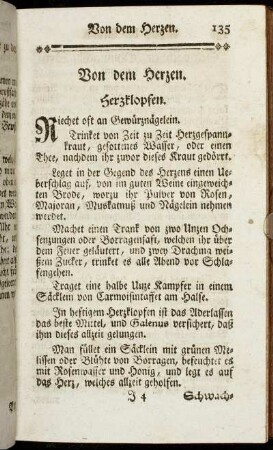 Von dem Herzen. 135
Von dem Herzen.
Herzklopfen.
Riechet oft an Gewürznägelein.
Trinket von Zeit zu Zeit Herzgespann-
kraut, gesottenes Wasser, oder einen
Thee, nachdem ihr zuvor dieses Kraut gedörrt.
Leget in der Gegend des Herzens einen Ue-
berschlag auf, von im guten Weine eingeweich-
ten Brode, worzu ihr Pulver von Rosen,
Majoran, Muskatnuß und Nägelein nehmen
werdet.
Machet einen Trank von zwo Unzen Och-
senzungen oder Borragensaft, welchen ihr über
dem Feuer geläutert, und zwey Drachma weis-
sem Zucker, trinket es alle Abend vor Schla-
fengehen.
Traget eine halbe Unze Kampfer in einem
Säcklein von Carmoisintaffet am Halse.
In heftigem Herzklopfen ist das Aderlassen
das beste Mittel, und Galenus versichert, daß
ihm dieses allzeit gelungen.
Man füllet ein Säcklein mit grünen Me-
lissen oder Blühte von Borragen, befeuchtet es
mit Rosenwasser und Honig, und legt es auf
das Herz, welches allzeit geholfen.
J 4 Schwach-